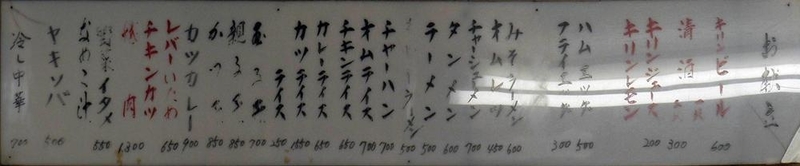 お献立
キリンビール 600
清酒 一級 300
二級
キリンジュース 200
キリンレモン
ハムエッグ 500
フライエッグ 300
みそラーメン 600
オムレツ 450
チャーシューメン 700
タンメン 600
ラーメン 500
チャーハン 700
オムライス 700
チキンライス 650
カレーライス 650
カツライス
ライス 250
玉子丼 700
親子丼 850
かつ丼 850
カツカレー 900
レバーいため 650
チキンカツ
焼肉 1300
野菜イタメ 550
なめこ汁
ヤキソバ 500
冷し中華 700